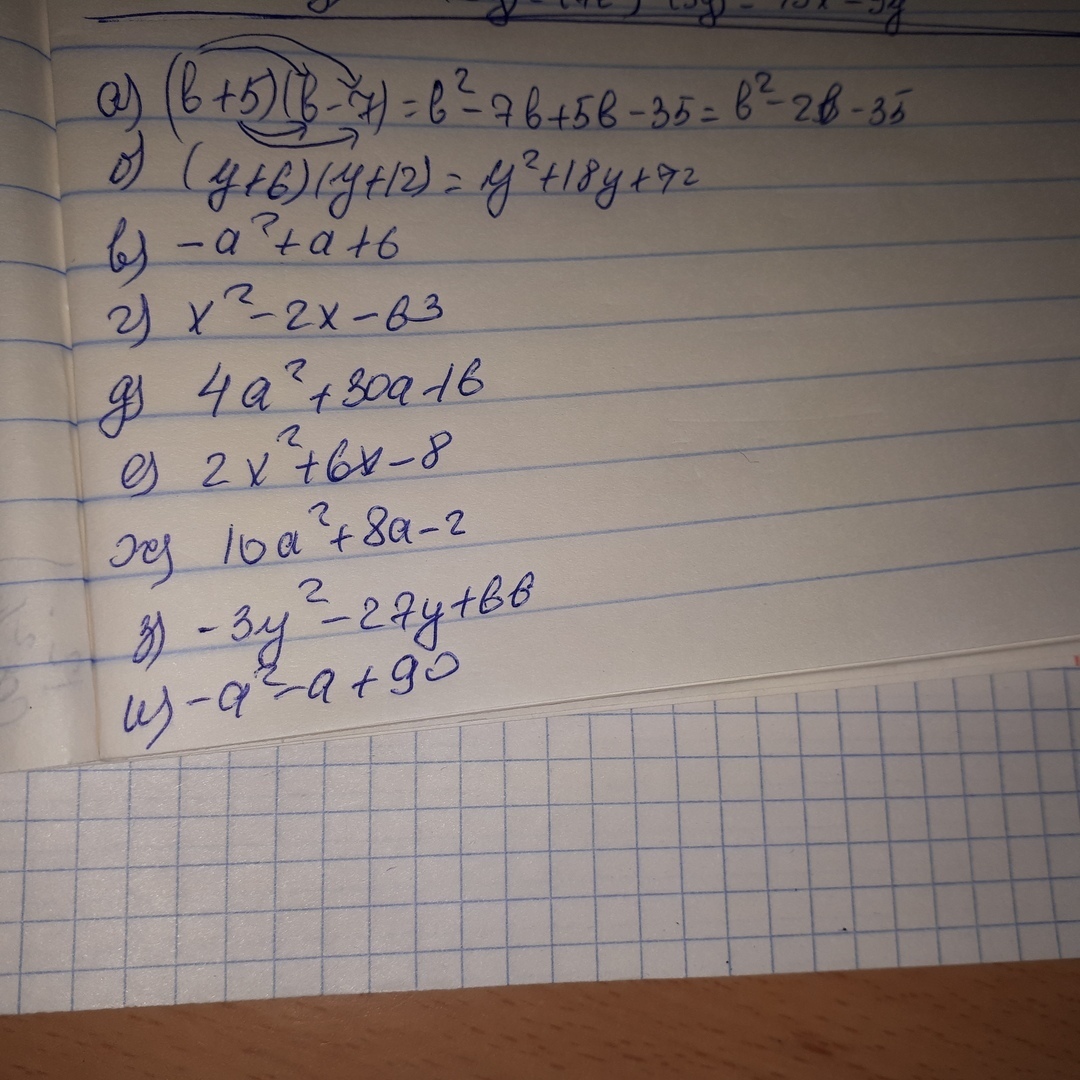 а) (b+5)(b-7)=b²-7b+5b-35=b²-2b-35
б) (y+6)(y+12)=y²+18y+72
в) -a²+a+6
г) x²-2x-63
д) 4a²+30a-16
е) 2x²+6x-8
ж) 10a²+8a-2
з) -3y²-27y+66
и) -a²-a+90